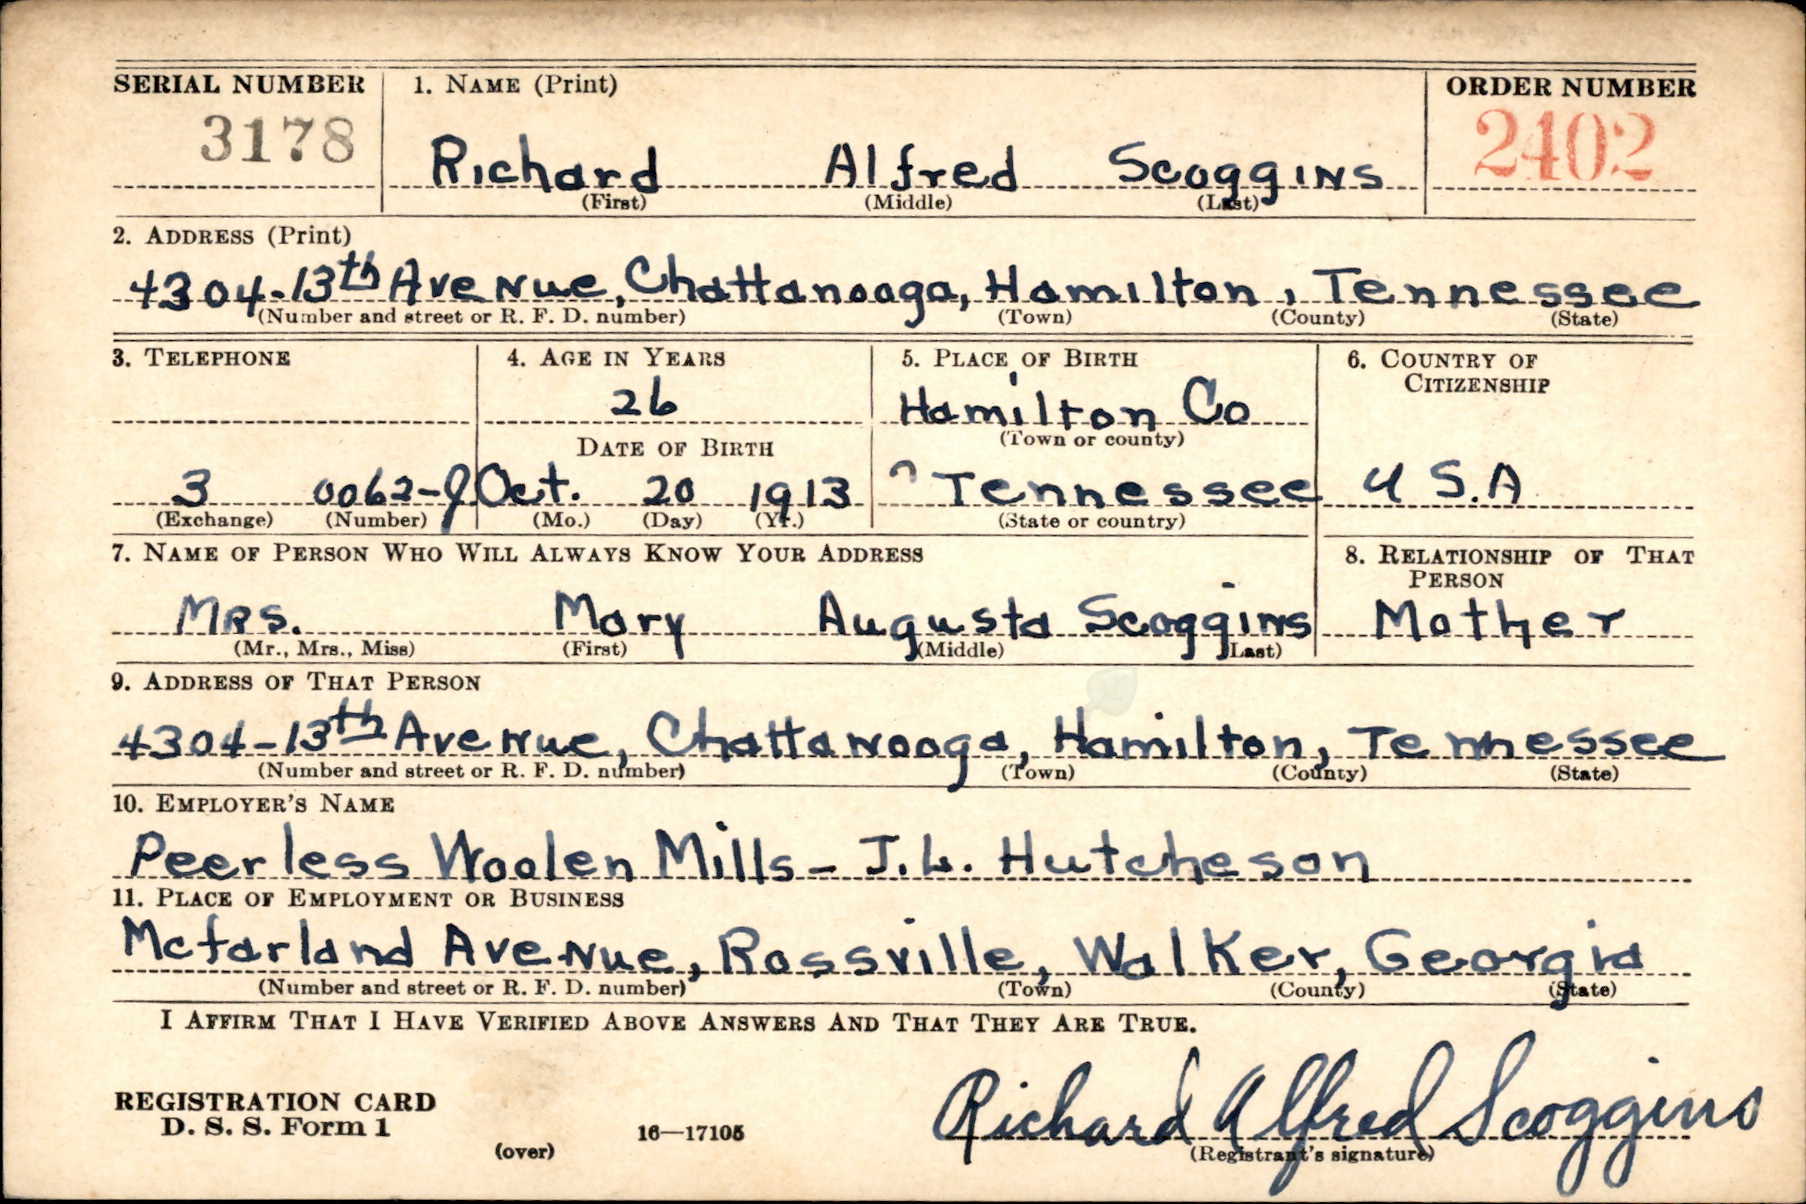 SERIAL NUMBER 1. NAME (Print) ORDER NUMBER
3178 Richard Alfred Scoggins 2402
(First) (Middle) (Last)
2. ADDRESS (Print)
4304-13th Avenue, Chattanooga, Hamilton, Tennessee
(Number and street or R. F. D. number) (Town) (County) (State)
3. TELEPHONE 4. AGE IN YEARS 5. PLACE OF BIRTH 6. COUNTRY OF CITIZENSHIP
26 Hamilton Co
DATE OF BIRTH (Town or county)
3 0062-J Oct. 20 1913 Tennessee U S.A
(Exchange) (Number) (Mo.) (Day) (Yr.) (State or country)
7. NAME OF PERSON WHO WILL ALWAYS KNOW YOUR ADDRESS 8. RELATIONSHIP OF THAT PERSON
Mrs. Mary Augusta Scoggins Mother
(Mr., Mrs., Miss) (First) (Middle) (Last)
9. ADDRESS OF THAT PERSON
4304-13th Avenue, Chattanooga, Hamilton, Tennessee
(Number and street or R. F. D. number) (Town) (County) (State)
10. EMPLOYER'S NAME
Peerless Woolen Mills - J.L. Hutcheson
11. PLACE OF EMPLOYMENT OR BUSINESS
Mcfarland Avenue, Rossville, Walker, Georgia
(Number and street or R. F. D. number) (Town) (County) (State)
I AFFIRM THAT I HAVE VERIFIED ABOVE ANSWERS AND THAT THEY ARE TRUE.
REGISTRATION CARD
D. S. S. Form 1
(over)
16—17105
Richard Alfred Scoggins
(Registrant's signature)